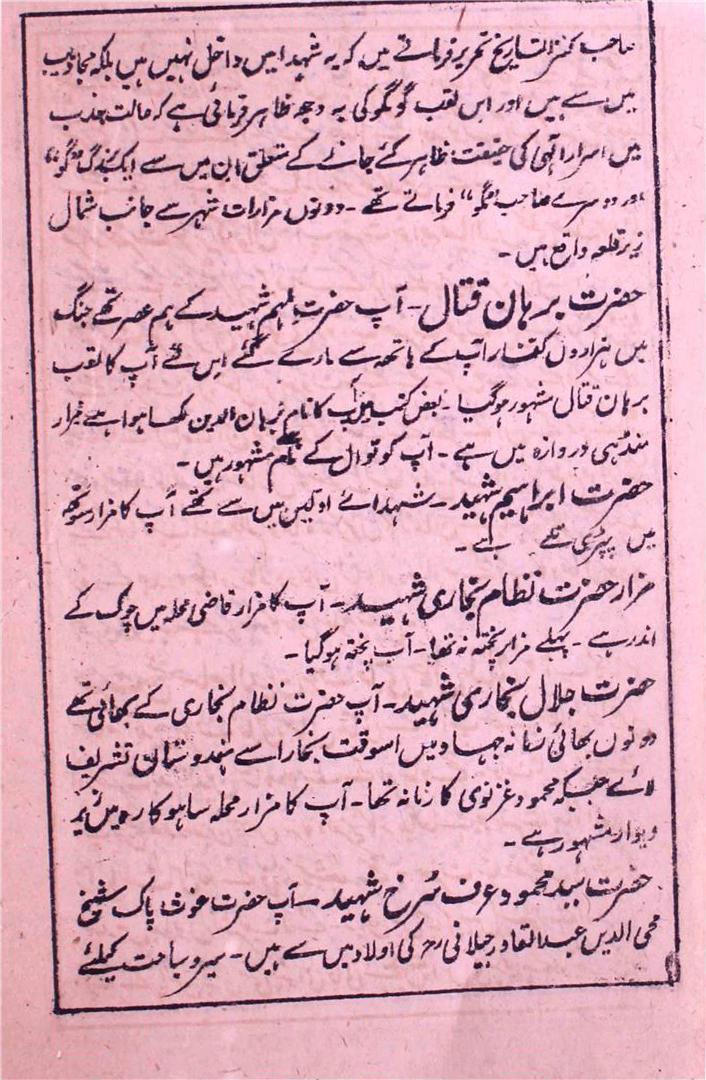 صاحب کنز التاریخ تحریر فرماتے ہیں کہ یہ شہدا میں داخل نہیں ہیں بلکہ مجاذیب
میں سے ہیں اور اس لقب گو مگو کی یہ وجہ ظاہر فرمائی ہے کہ حالت جذب
میں اسرار الٰہی کی حقیقت ظاہر کئے جانے کے متعلق ان میں سے ایک بزرگ "گو"
اور دوسرے صاحب "مگو" فرماتے تھے ۔ دونوں مزارات شہر سے جانب شمال
زیر قلعہ واقع ہیں ۔
حضرت برہان قتال ۔ آپ حضرت ملہم شہید کے ہم عصر تھے جنگ
میں ہزاروں کفار آپ کے ہاتھ سے مارے گئے اس لئے آپ کا لقب
برہان قتال مشہور ہو گیا ۔ بعض کتب میں آپ کا نام برہان الدین لکھا ہوا ہے مزار
دروازہ میں ہے ۔ آپ کو قوال کے نام سے مشہور ہیں ۔
حضرت ابراہیم شہید ۔ شہدائے اولین میں سے تھے آپ کا مزار سوتھ
میں ہے ۔
مزار حضرت نظام بخاری شہید ۔ آپ کا مزار قاضی محلہ میں چوک کے
اندر ہے ۔ پہلے مزار پختہ نہ تھا ۔ اب پختہ ہو گیا ۔
حضرت جلال بخاری شہید ۔ آپ حضرت نظام بخاری کے بھائی تھے
دونوں بھائی زمانہ جہاد میں اسوقت بخارا سے ہندوستان تشریف
لائے جبکہ محمود غزنوی کا زمانہ تھا ۔ آپ کا مزار محلہ ساہوکارہ میں زیر
دیوار مشہور ہے ۔
حضرت سید محمود عرف سُرخ شہید ۔ آپ حضرت غوث پاک شیخ
محی الدین عبدالقادر جیلانی رح کی اولاد میں سے ہیں ۔ سیر و سیاحت کیلئے